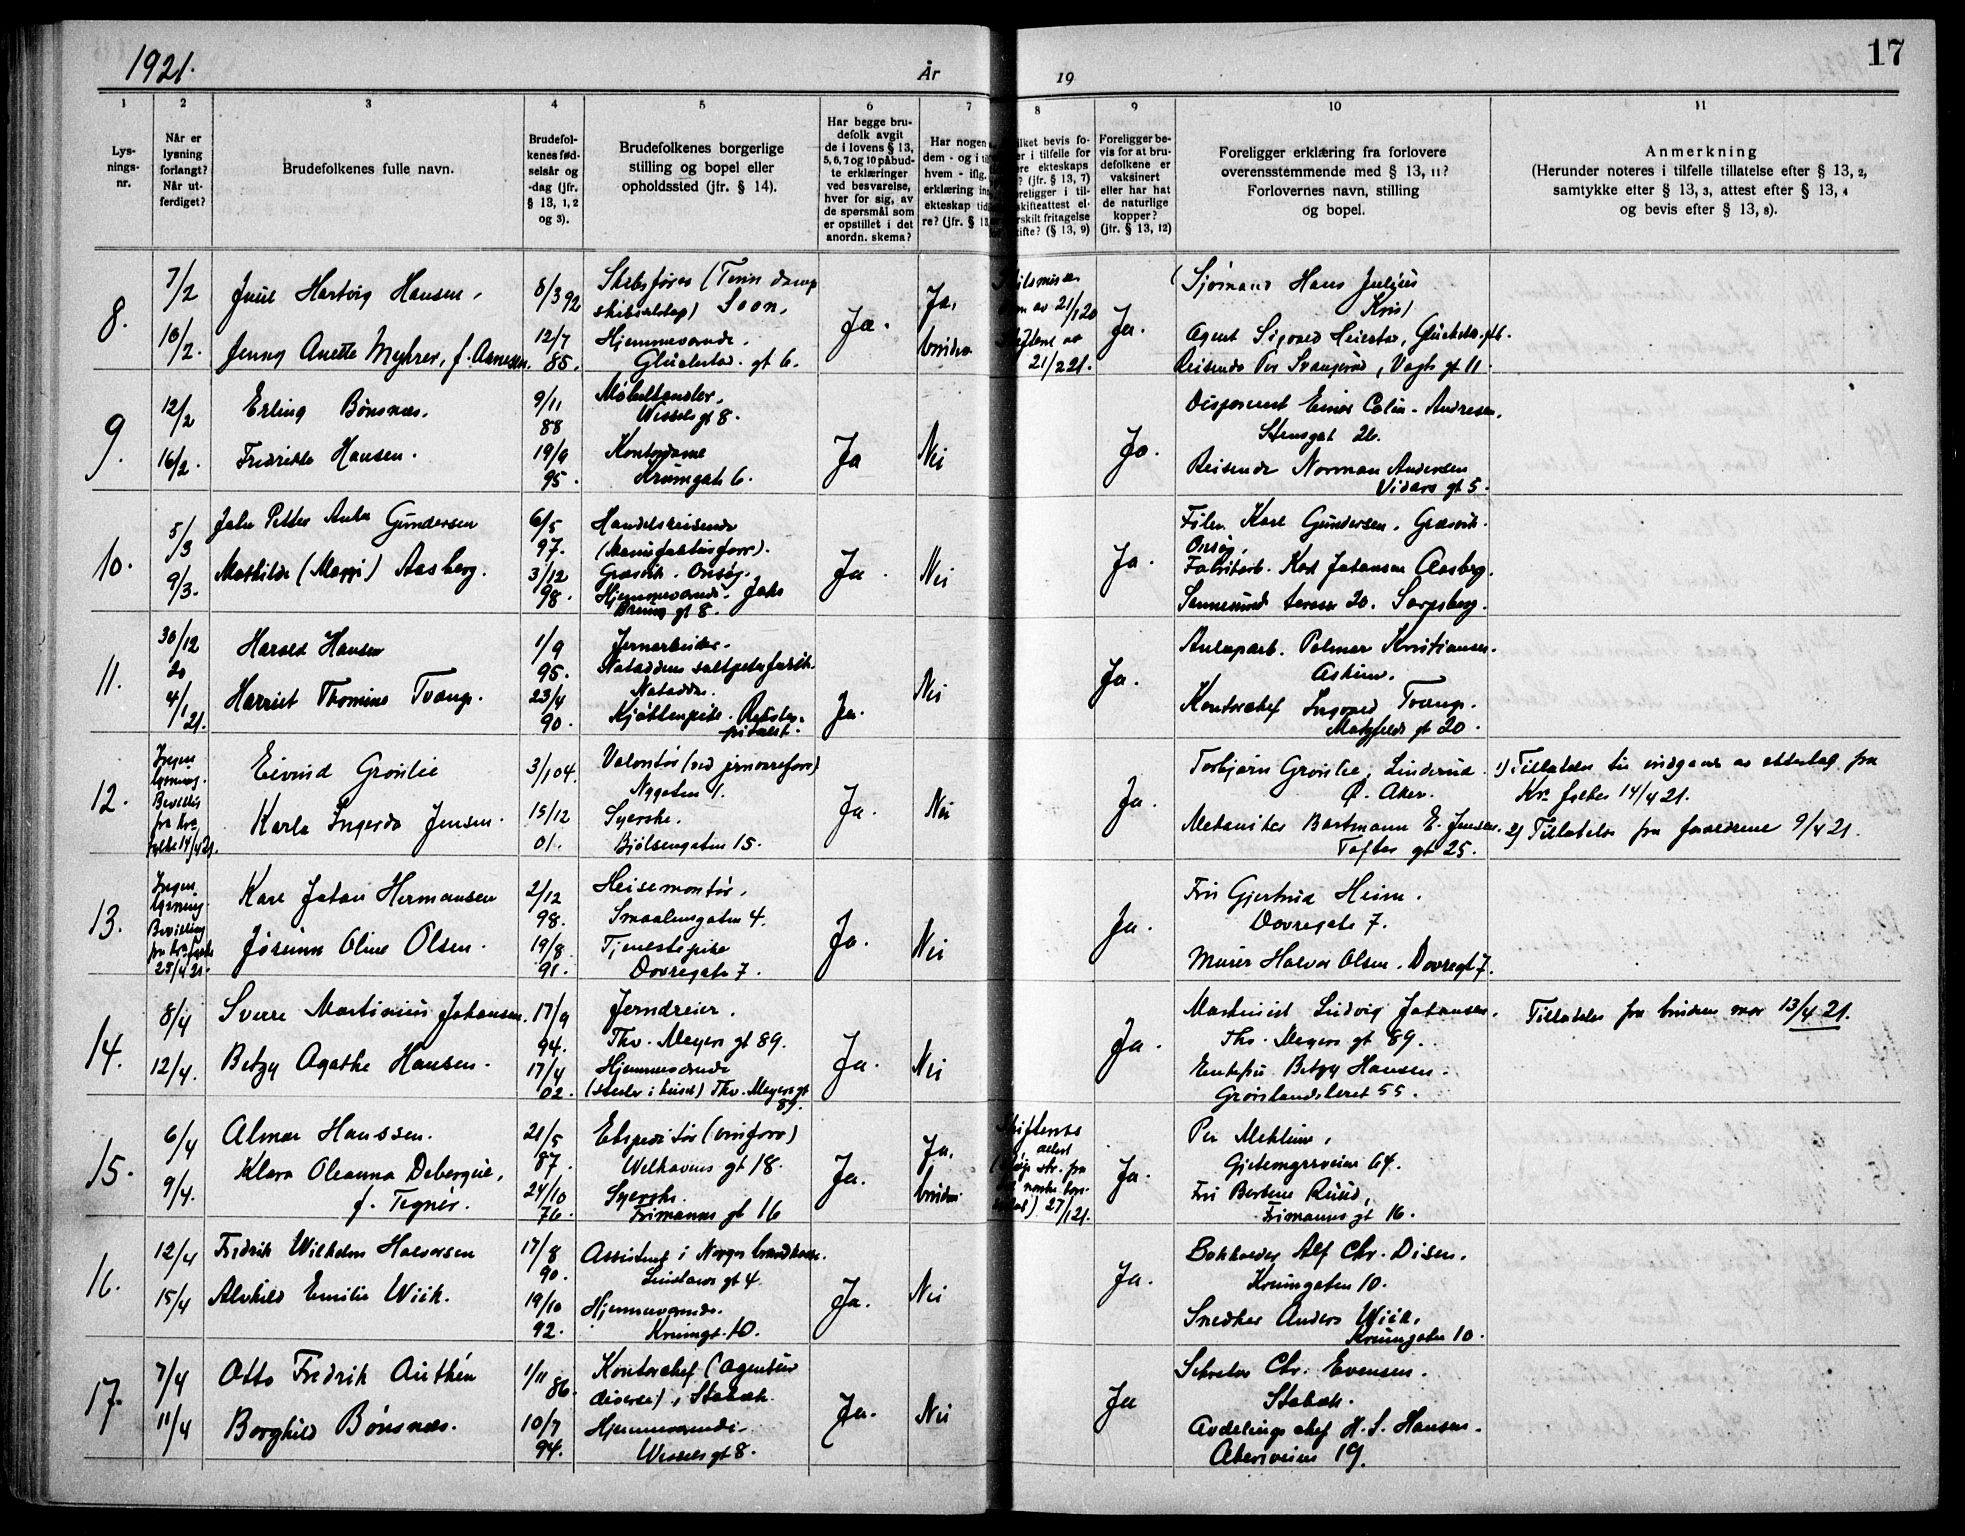 1921.
År
19
17
1
2
3
4
5
6
7
8
9
10
11
Lys-
nings-
nr.
Når er
lysning
forlangt?
Når ut-
ferdiget?
Brudefolkenes fulle navn.
Brudefol-
kenes fød-
selsår og
-dag (jfr.
§ 13, 1, 2
og 3).
Brudefolkenes borgerlige
stilling og bopel eller
opholdssted (jfr. § 14).
Har begge bru-
defolk avgit
de i lovens § 13,
5, 6, 7 og 10 påbud-
te erklæringer
ved besvarelse,
hver for sig, av
de spørsmål som
er opstillet i det
anordn. skema?
Har nogen
dem - og i
hvem - iflg.
erklæring
ekteskap tid
re? (jfr. § 13
bevis fo-
er i tilfelle for
ekteskaps
? (jfr. § 13, 7)
i til-
skifteattest el-
fritagelse
? (§ 13, 9)
Foreligger be-
vis for at bru-
defolkene er
vaksinert
eller har hat
de naturlige
kopper?
(jfr. § 13, 12)
Foreligger erklæring fra forlovere
overensstemmende med § 13, 11?
Forlovernes navn, stilling
og bopel.
Anmerkning
(Herunder noteres i tilfelle tillatelse efter § 13, 2,
samtykke efter § 13, 3, attest efter § 13, 4
og bevis efter § 13, 8).
8.
7/2
10/2.
Juul Hartvig Hansen.
Jenny Anette Myhrer, f. Arnesen.
8/3 92
12/7
85.
Skibsfører
Soon.
Hjemmeværende.
gt 6.
Ja.
Ja,
bruden
av 21/1 20
21/2 21.
Ja.
Sjømand Hans Julius
Agent Sigvard
Reisende Per Svangerud, Vogts gt 11.
9.
12/2
16/2.
Erling Bønsnæs.
Fredrikke Hansen.
9/11
88
19/9
95.
Møbelhandler,
Wessels gt 8.
Kontordame
Krumgate 6.
Ja
Nei
Ja.
Disponent Einar Colin-Andresen,
Stensgat 26.
Reisende Norman Andersen
Vidars gt 5.
10.
5/3
9/3.
John Petter Anker Gundersen
Mathilde (Maggi) Aasberg.
6/5
97.
3/12
98.
Handelsreisende
(Manufakturforr).
Græsvik. Onsøy.
Hjemmeværende. Jens
Bruns gt 8.
Ja.
Nei
Ja.
Karl Gundersen, Græsvik.
Onsøy,
Fabrikarb. Karl Johansen Aasberg.
Sannesund terasse 20. Sarpsborg.
11.
30/12
20
4/1 21.
Harald Hansen
Harriet Thomine Tvang.
1/9
95.
23/4
90.
Jernarbeider.
Notodden saltpeterfabrik.
Notodden.
Kjøkkenpike.
Ja.
Nei
Ja.
Anlægsarb. Palmer Kristiansen.
Askim.
Kontorchef Ingvard Tvang.
gt 20.
12.
Ingen
lysning.
Bevilling
fra Kra
fylke 14/4 21.
Eivind Grønlie
Karla Ingerda Jensen.
3/1 04.
15/12
01.
Volontør (ved jernvareforr)
Nygaten 1.
Syerske.
Bjølsengaten 15.
Ja.
Nei
Ja.
Torbjørn Grønlie, Linderud
Ø. Aker.
Mekaniker Bertmann E. Jensen.
Toftes gt 25.
1) Tillatelse til indgaaelse av ekteskap fra
Kra fylke 14/4 21.
2) Tillatelse fra foreldrene 9/4 21.
13.
Ingen
lysning.
Bevilling
fra Kra fylke
25/4 21.
Karl Johan Hermansen
Josefine Oline Olsen.
2/12
98.
19/8
91.
Heisemontør,
Smaalensgaten 4.
Tjenestepike
Dovregate 7.
Ja.
Nei
Ja.
Fru Gjertrud Heim.
Dovregate 7.
Murer Halvor Olsen. Dovregt 7.
14.
8/4
12/4.
Sverre Martinius Johansen.
Betzy Agathe Hansen.
17/9
94.
17/4
02.
Jerndreier.
Thv. Meyers gt 89.
Hjemmeværende
(steller i huset) Thv. Meyers gt
89.
Ja.
Nei
Ja.
Maskinist Ludvig Johansen.
Thv. Meyers gt 89.
Enkefru Betzy Hansen.
Grønlandsleret 55.
Tillatelse fra brudens mor 13/4 21.
15.
6/4
9/4.
Almar Hanssen.
Klara Oleanna Debergue,
f. Tegner.
21/5
87.
24/10
76.
Ekspeditør (vinforr)
Welhavens gt 18.
Syerske.
Frimanns gt 16
Ja.
Ja.
bruden
27/1 21.
Ja.
Per Mehlum,
Gjetemyrsveien 64.
Fru Ruud,
Frimanns gt 16.
16.
12/4
15/4
Fredrik Wilhelm Halvorsen
Alvhild Emilie Wiik.
17/8
90.
19/10
92.
Assistent i Norges brandkasse.
Lindems gt 4.
Hjemmeværende.
Krumgt. 10.
Ja.
Nei
Ja.
Bokholder Alf Chr. Disen.
Krumgaten 10.
Snedker Anders Wiik,
Krumgaten 10.
17.
7/4
11/4
Otto Fredrik Authén
Borghild Bønsnæs.
1/11
86.
10/7
94.
Kontorchef (Agentur
Stabæk.
Hjemmeværende.
Wessels gt 8.
Ja.
Nei
Ja
Sekretær Chr. Evensen.
Stabæk.
Avdelings chef H. S. Hansen.
Akersveien 19.